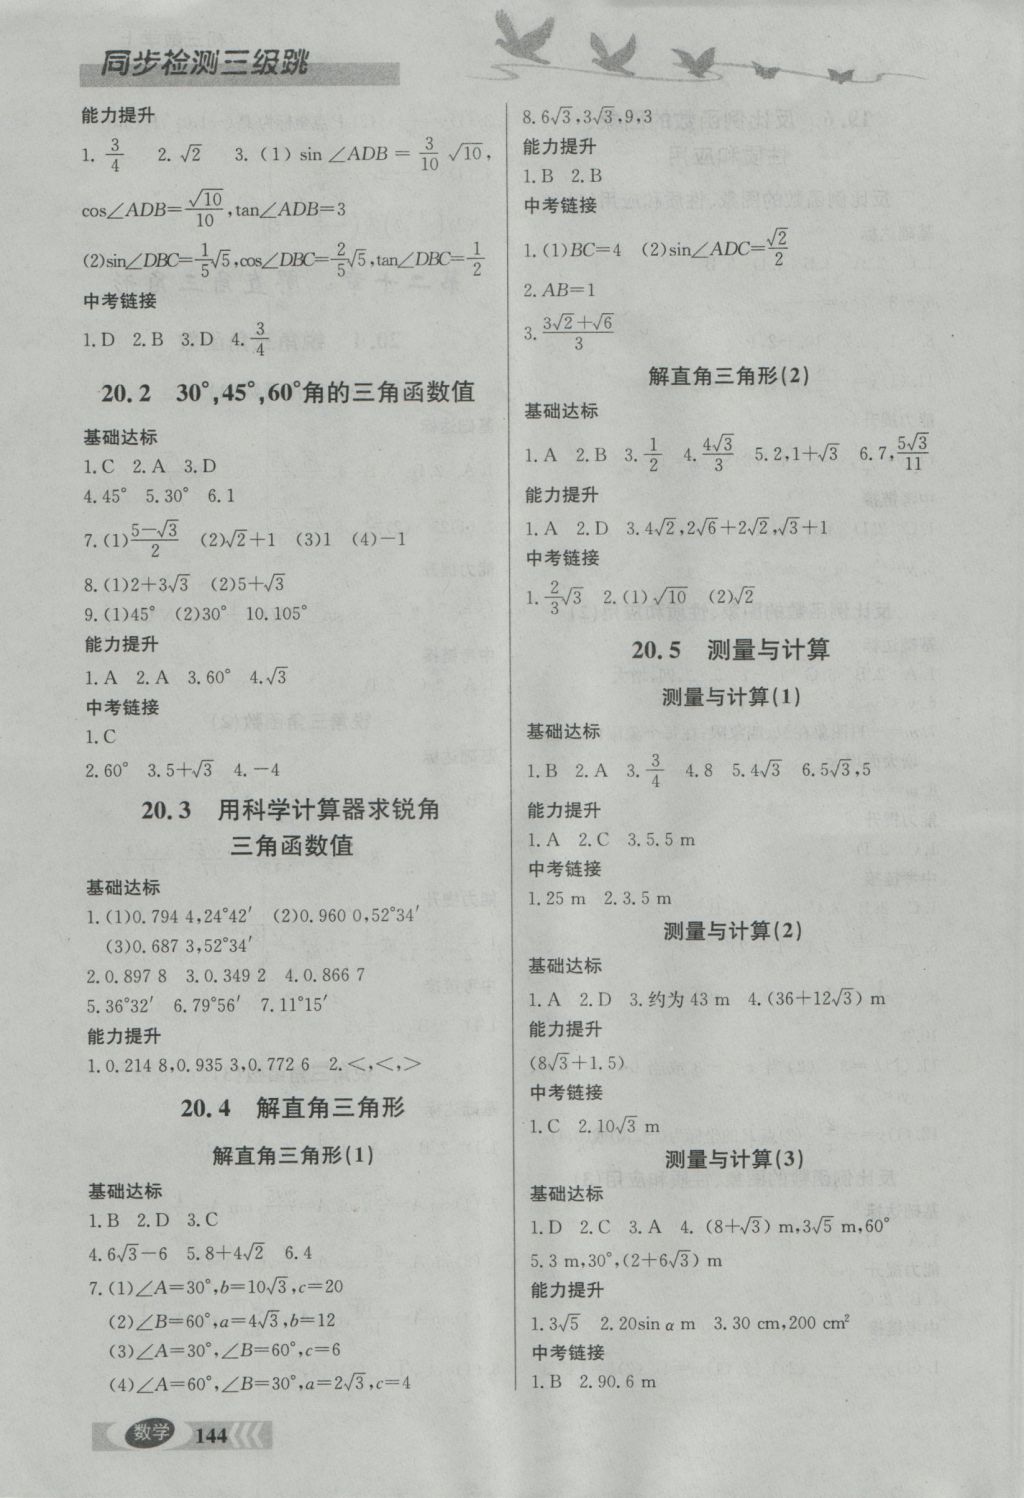 同步检测三级跳
能力提升
1. 3/4 2. √2 3. (1) sin ∠ADB = 3/10 √10,
cos∠ADB=√10/10, tan∠ADB=3
(2)sin∠DBC=1/5√5,cos∠DBC=2/5√5,tan∠DBC=1/2
中考链接
1. D 2. B 3. D 4. 3/4
20. 2 30°,45°,60°角的三角函数值
基础达标
1. C 2. A 3. D
4. 45° 5. 30° 6. 1
7. (1)(5-√3)/2 (2)√2+1 (3)1 (4)-1
8. (1)2+3√3 (2)5+√3
9. (1)45° (2)30° 10. 105°
能力提升
1. A 2. A 3. 60° 4. √3
中考链接
1. C
2. 60° 3. 5+√3 4. -4
20. 3 用科学计算器求锐角
三角函数值
基础达标
1. (1)0. 794 4,24°42′ (2)0. 960 0,52°34′
(3)0. 687 3,52°34′
2. 0. 897 8 3. 0. 349 2 4. 0. 866 7
5. 36°32′ 6. 79°56′ 7. 11°15′
能力提升
1. 0. 214 8,0. 935 3,0. 772 6 2. <,<,>
20. 4 解直角三角形
解直角三角形(1)
基础达标
1. B 2. D 3. C
4. 6√3-6 5. 8+4√2 6. 4
7. (1)∠A=30°,b=10√3,c=20
(2)∠B=60°,a=4√3,b=12
(3)∠A=30°,∠B=60°,c=6
(4)∠A=60°,∠B=30°,a=2√3,c=4
数学 144
8. 6√3,3√3,9,3
能力提升
1. B 2. B
中考链接
1. (1)BC=4 (2)sin∠ADC=√2/2
2. AB=1
3. (3√2+√6)/3
解直角三角形(2)
基础达标
1. A 2. B 3. 1/2 4. 4√3/3 5. 2,1+√3 6. 7,5√3/11
能力提升
1. A 2. D 3. 4√2,2√6+2√2,√3+1
中考链接
1. 2/3√3 2. (1)√10 (2)√2
20. 5 测量与计算
测量与计算(1)
基础达标
1. B 2. A 3. 3/4 4. 8 5. 4√3 6. 5√3,5
能力提升
1. A 2. C 3. 5. 5 m
中考链接
1. 25 m 2. 3. 5 m
测量与计算(2)
基础达标
1. A 2. D 3. 约为 43 m 4. (36+12√3) m
能力提升
(8√3+1. 5)
中考链接
1. C 2. 10√3 m
测量与计算(3)
基础达标
1. D 2. C 3. A 4. (8+√3) m,3√5 m,60°
5. 3 m,30°,(2+6√3) m
能力提升
1. 3√5 2. 20sin α m 3. 30 cm,200 cm²
中考链接
1. B 2. 90. 6 m